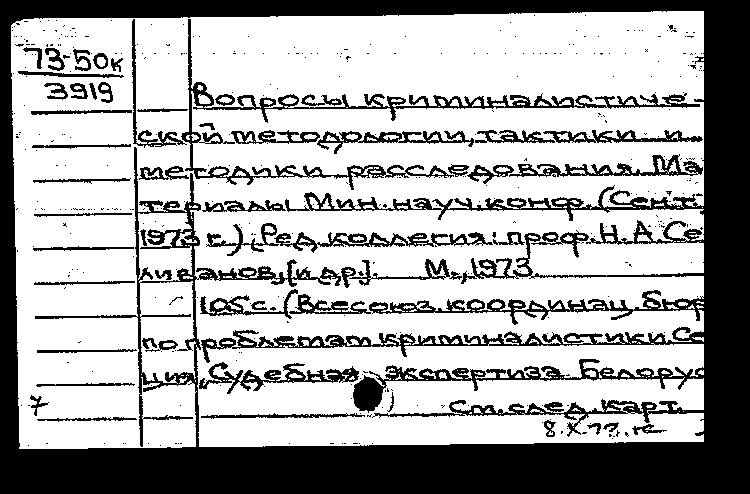 73-50к
3919
Вопросы криминалистиче-
ской методологии, тактики и
методики расследования. Ма
териалы Мин. науч. конф. (Сент.
1973 г.). Ред. коллегия: проф. Н. А. Се
ливанов, [и др.]. М., 1973.
105 с. (Всесоюз. координац. бюр
по проблемам криминалистики. Се
ция „Судебная экспертиза Белорус
См. след. карт.
7
8.X.73.